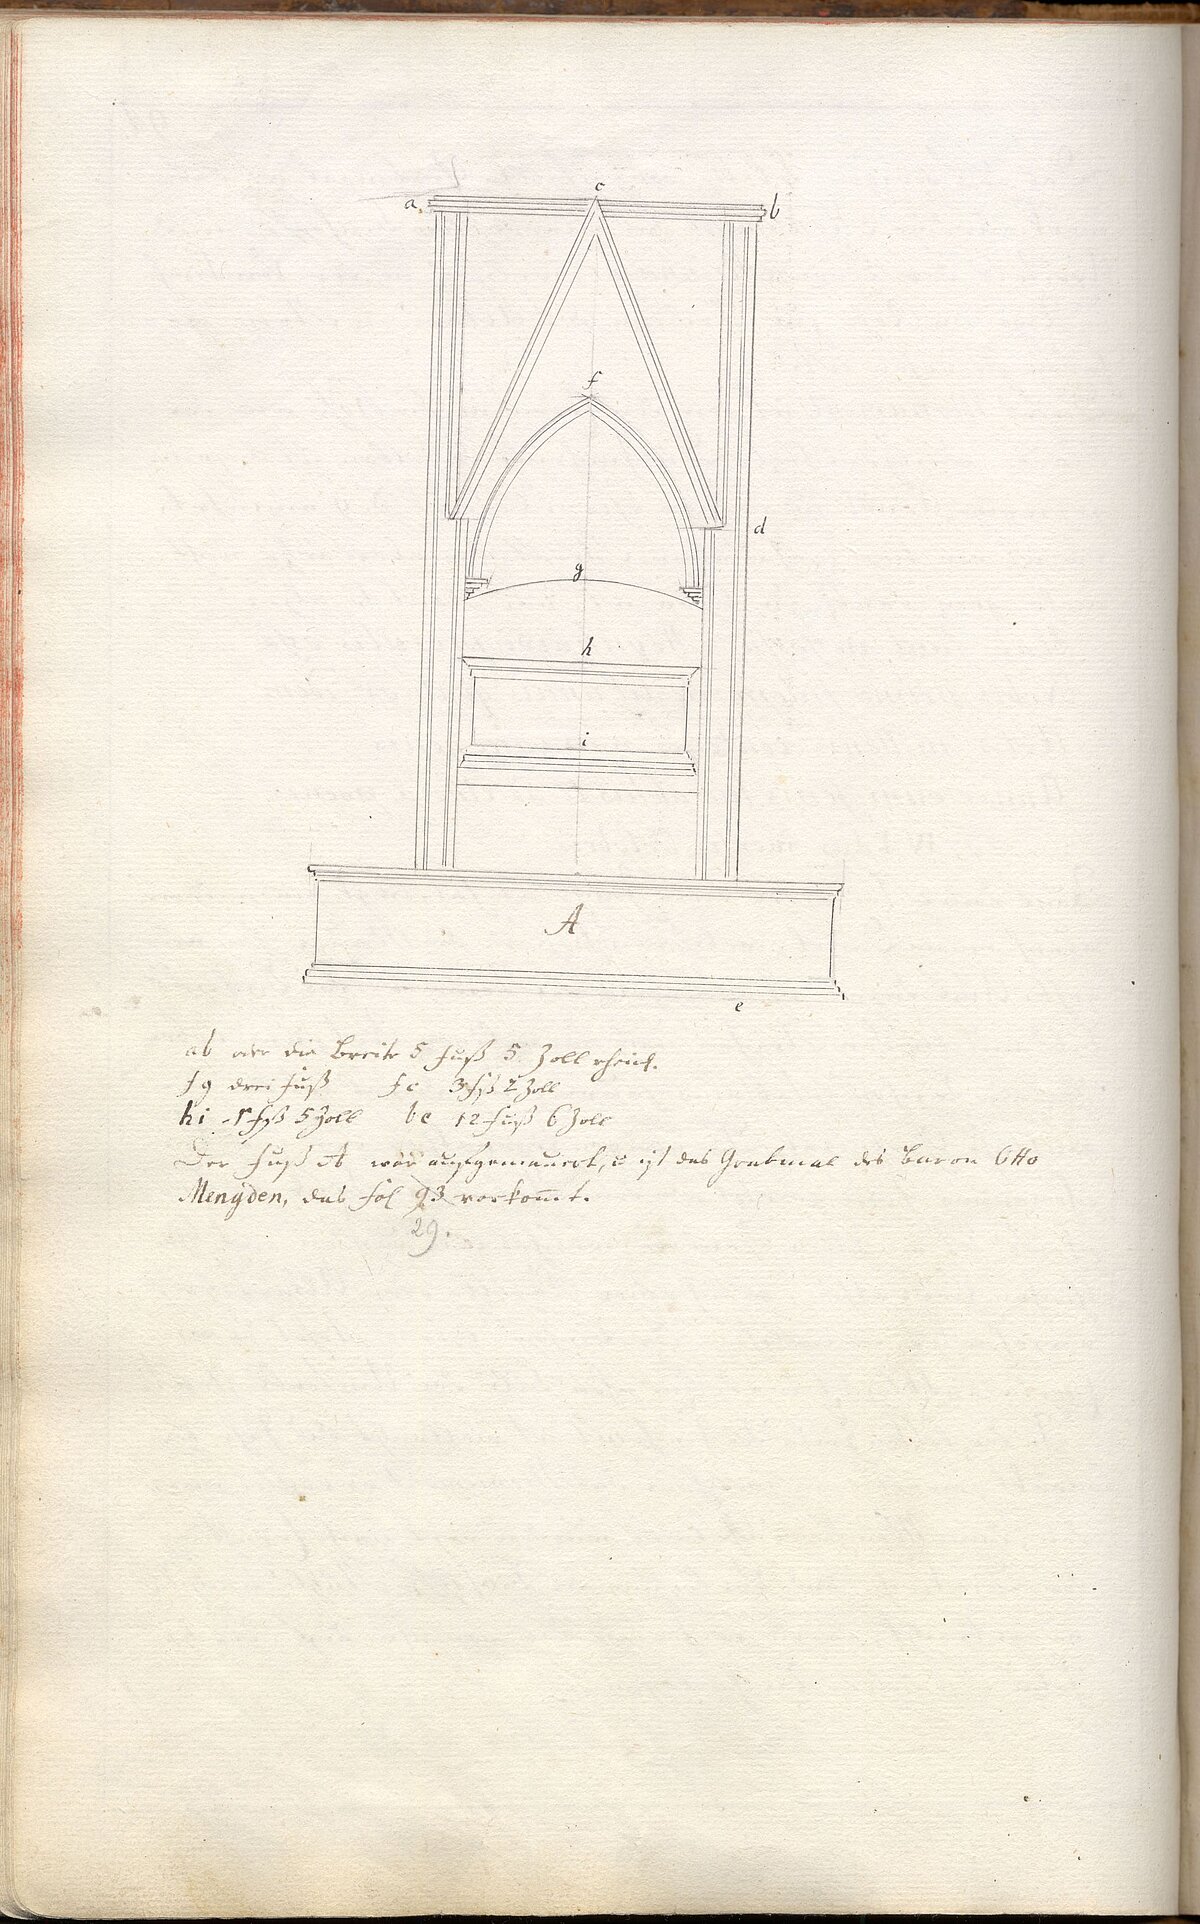 c
a. b
f
d
g
h
i
A
e
ab oder die Breite 5 Fuß 5 Zoll rheinl.
fg drei Fuß fc 3 fß 2 Zoll
hi 1 fß 5 Zoll be 12 Fuß 6 Zoll
Der Fuß A war ausgemauert, u ist das Grabmal des Baron Otto
Mengden, das fol 93 vorkom̄t.
29.